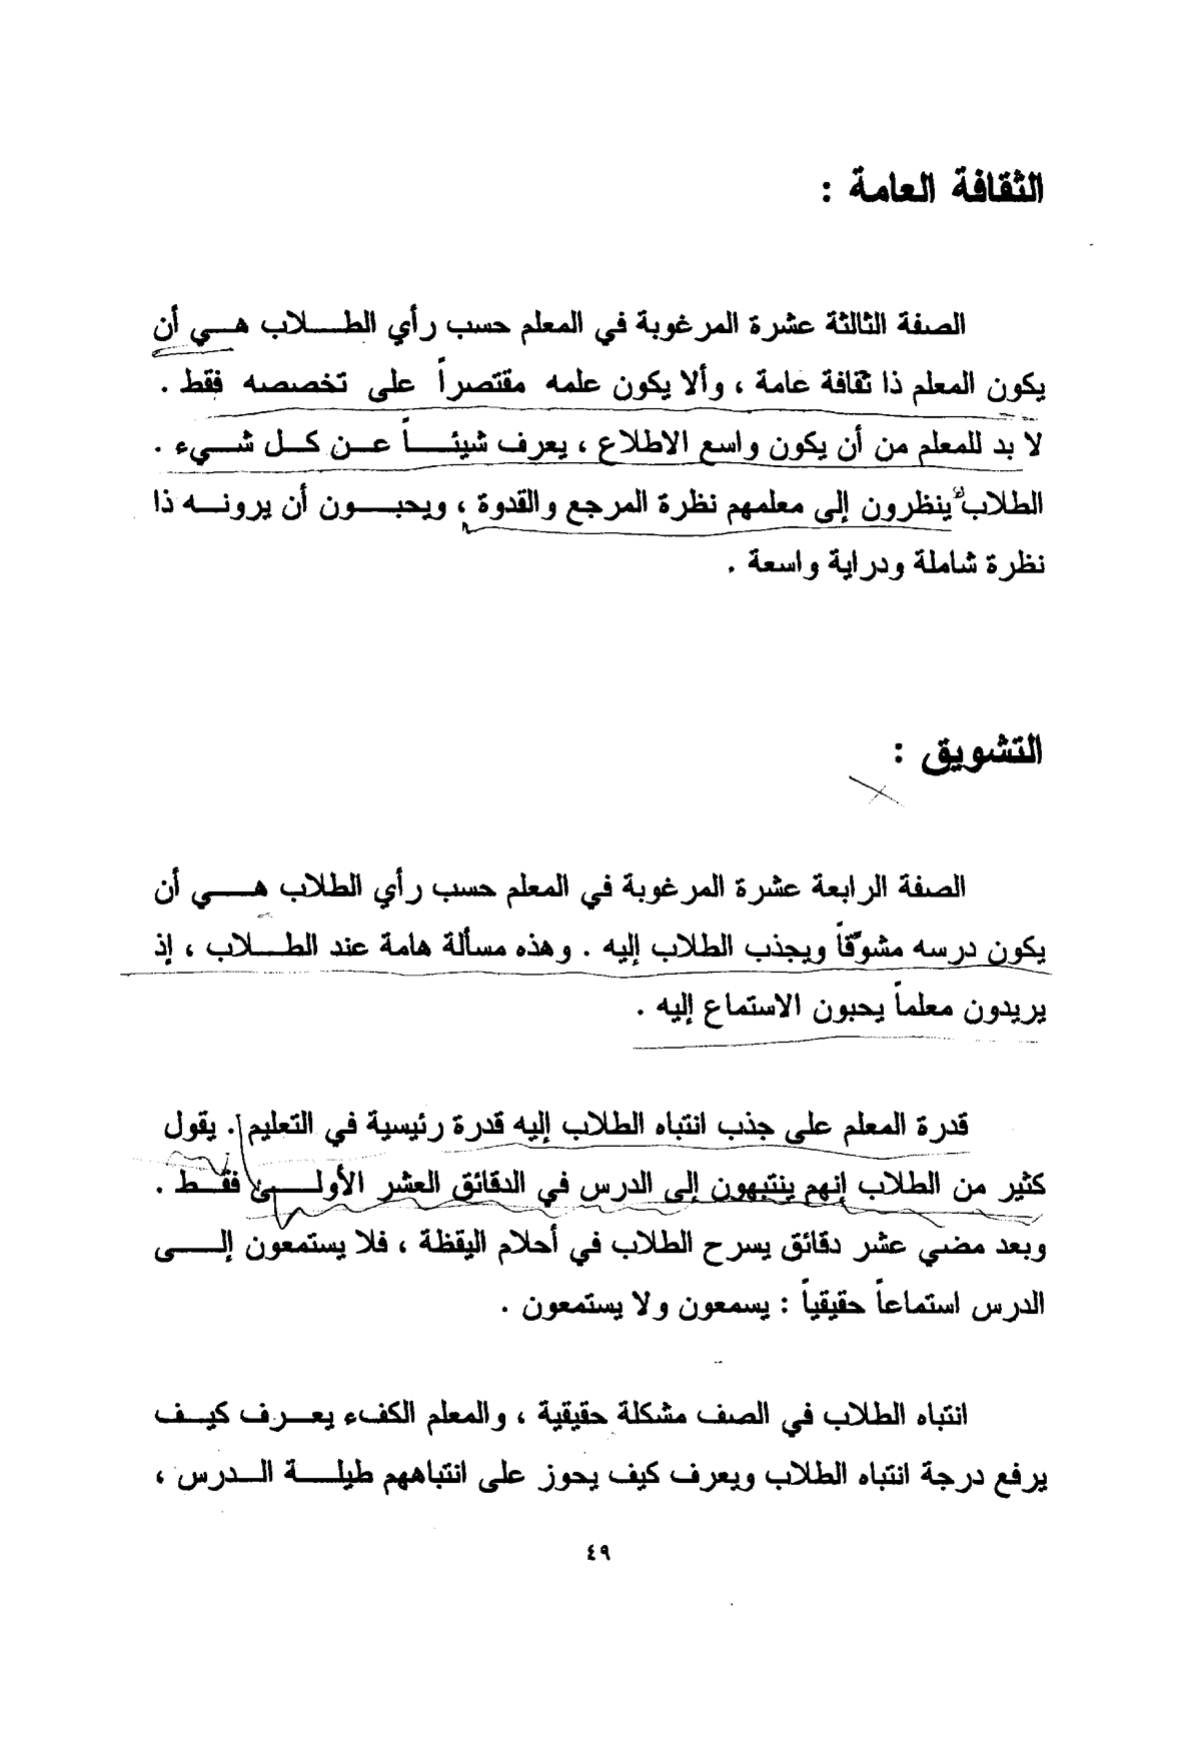 الثقافة العامة :
الصفة الثالثة عشرة المرغوبة في المعلم حسب رأي الطلاب هي أن
يكون المعلم ذا ثقافة عامة ، وألا يكون علمه مقتصراً على تخصصه فقط .
لا بد للمعلم من أن يكون واسع الاطلاع ، يعرف شيئاً عن كل شيء .
الطلاب ينظرون إلى معلمهم نظرة المرجع والقدوة ، ويحبون أن يرونه ذا
نظرة شاملة ودراية واسعة .
التشويق :
الصفة الرابعة عشرة المرغوبة في المعلم حسب رأي الطلاب هي أن
يكون درسه مشوّقاً ويجذب الطلاب إليه . وهذه مسألة هامة عند الطلاب ، إذ
يريدون معلماً يحبون الاستماع إليه .
قدرة المعلم على جذب انتباه الطلاب إليه قدرة رئيسية في التعليم . يقول
كثير من الطلاب إنهم ينتبهون إلى الدرس في الدقائق العشر الأولى فقط .
وبعد مضي عشر دقائق يسرح الطلاب في أحلام اليقظة ، فلا يستمعون إلى
الدرس استماعاً حقيقياً : يسمعون ولا يستمعون .
انتباه الطلاب في الصف مشكلة حقيقية ، والمعلم الكفء يعرف كيف
يرفع درجة انتباه الطلاب ويعرف كيف يحوز على انتباههم طيلة الدرس ،
٤٩